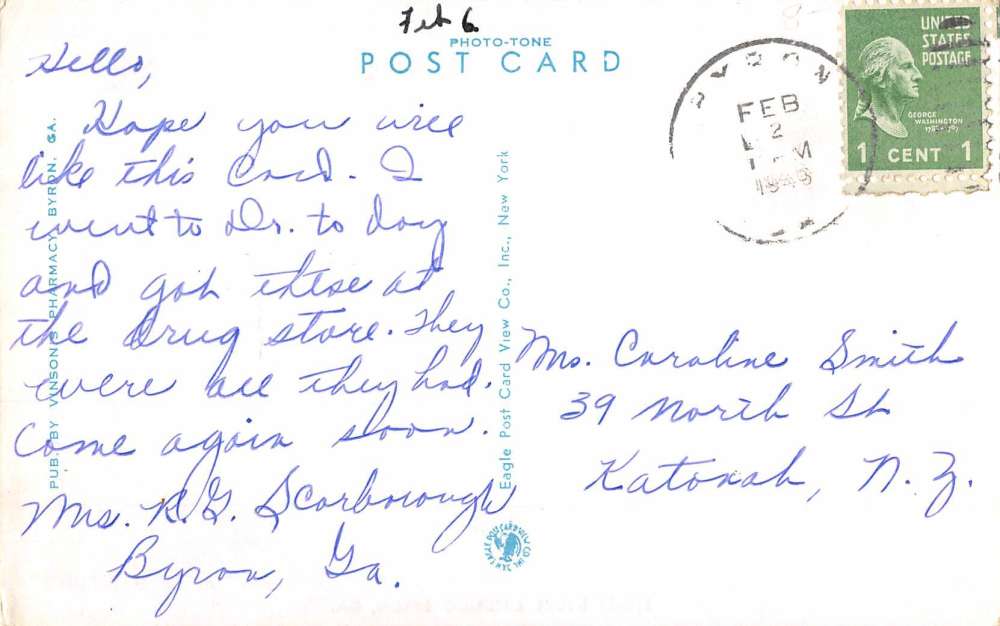 Feb 6
PHOTO-TONE
POST CARD
BYRON
FEB
2
1 PM
UNITED
STATES
POSTAGE
GEORGE
WASHINGTON
1 CENT 1
Hello,
Hope you will
like this Card. I
went to Dr. to day
and got these at
the drug store. They
were all they had.
Come again soon.
Mrs. R.G. Scarborough
Byron, Ga.
PUB. BY VINSON'S PHARMACY, BYRON, GA.
Eagle Post Card View Co., Inc., New York
Mrs. Caroline Smith
39 North St
Katonah, N.Y.